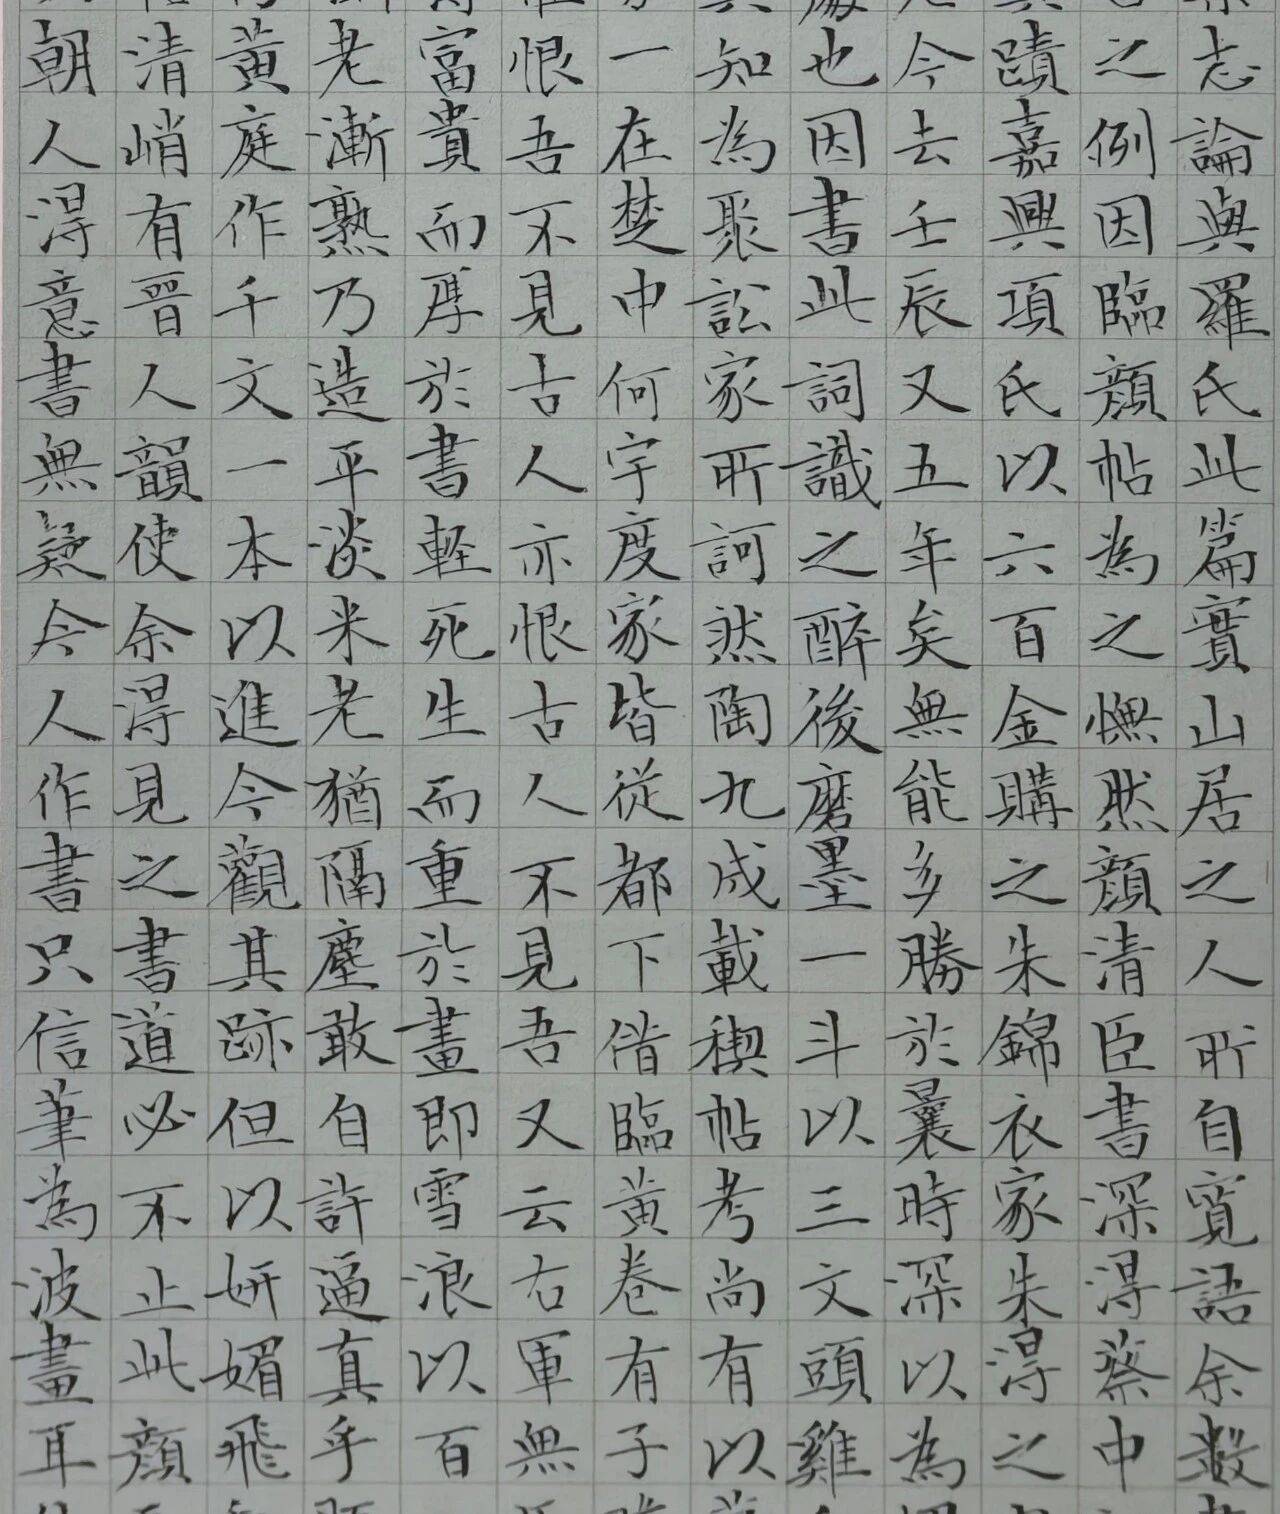 志論與羅氏此篇實山居之人所自寬語余數
之例因臨顏帖為之憮然顏清臣書深得蔡中
蹟嘉興項氏以六百金購之朱錦衣家朱得之
今去壬辰又五年矣無能多勝於曩時深以為
也因書此詞識之醉後磨墨一斗以三文頭雞
知為聚訟家所訶然陶九成載稧帖考尚有以
一在楚中何宇度家皆從都下借臨黃卷有子
恨吾不見古人亦恨古人不見吾又云右軍無
富貴而厚於書軽死生而重於畫即雪浪以百
老漸熟乃造平淡米老猶隔塵敢自許逼真乎
黃庭作千文一本以進今觀其跡但以妍媚飛
清峭有晉人韻使余得見之書道必不止此顏
朝人得意書無疑今人作書只信筆為波畫耳